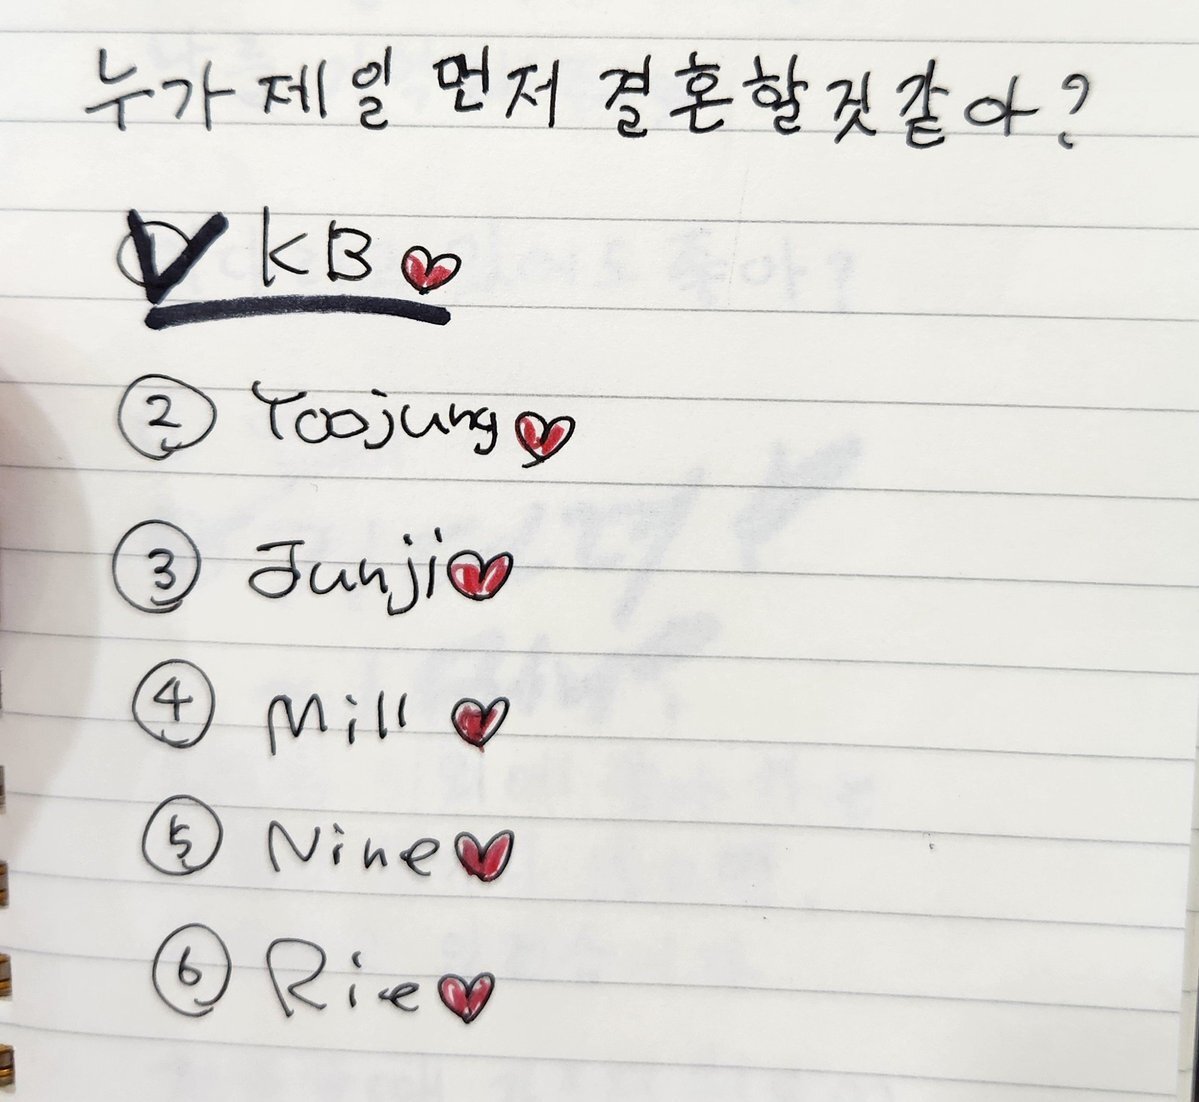 누가 제일 먼저 결혼할것같아?
① KB
② Yoojung
③ Junji
④ Mill
⑤ Nine
⑥ Rie